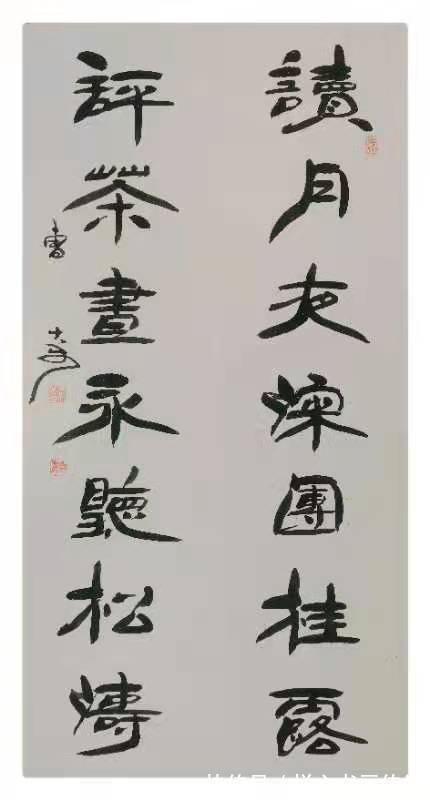 讀月夜涼團桂露
評茶晝永聽松濤
曹